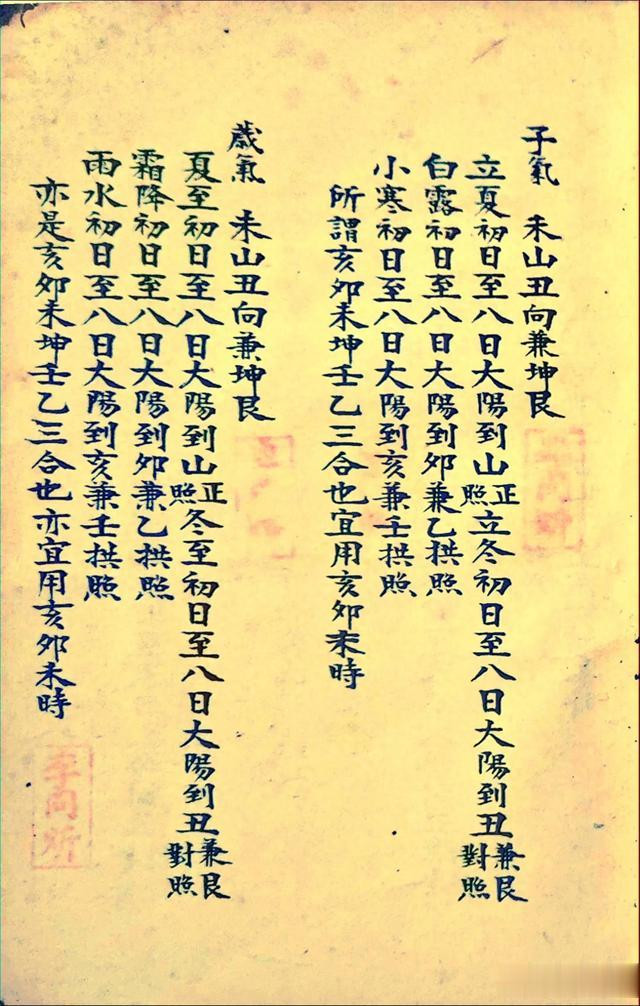 子氣　未山丑向兼坤艮
立夏初日至八日大陽到山正照立冬初日至八日大陽到丑兼艮對照
白露初日至八日大陽到卯兼乙拱照
小寒初日至八日大陽到亥兼壬拱照
所謂亥卯未坤壬乙三合也宜用亥卯未時
歲氣　未山丑向兼坤艮
夏至初日至八日大陽到山正照冬至初日至八日大陽到丑兼艮對照
霜降初日至八日大陽到卯兼乙拱照
雨水初日至八日大陽到亥兼壬拱照
亦是亥卯未坤壬乙三合也亦宜用亥卯未時